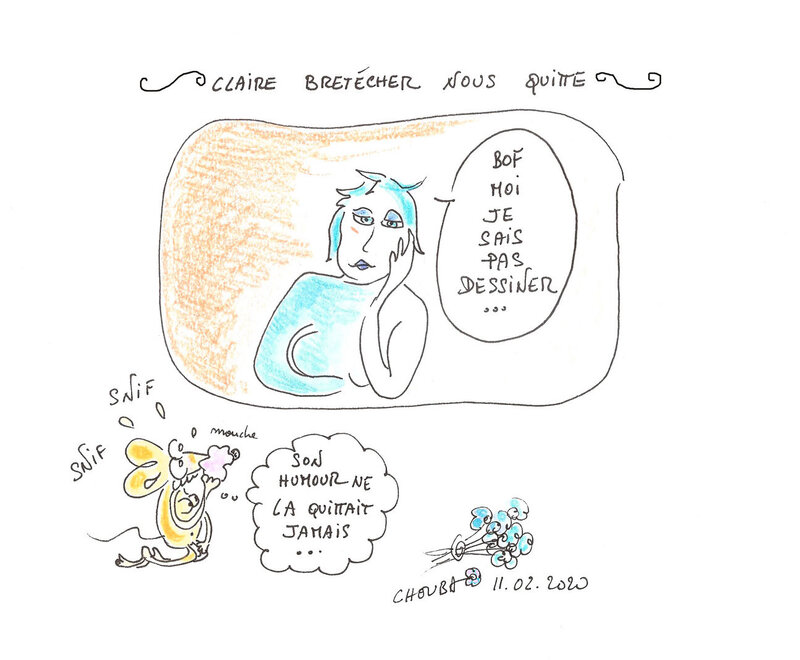 CLAIRE BRETÉCHER NOUS QUITTE
BOF
MOI
JE
SAIS
PAS
DESSINER
...
SNIF
SNIF
mouche
SON
HUMOUR NE
LA QUITTAIT
JAMAIS
...
CHOUBA 11.02.2020